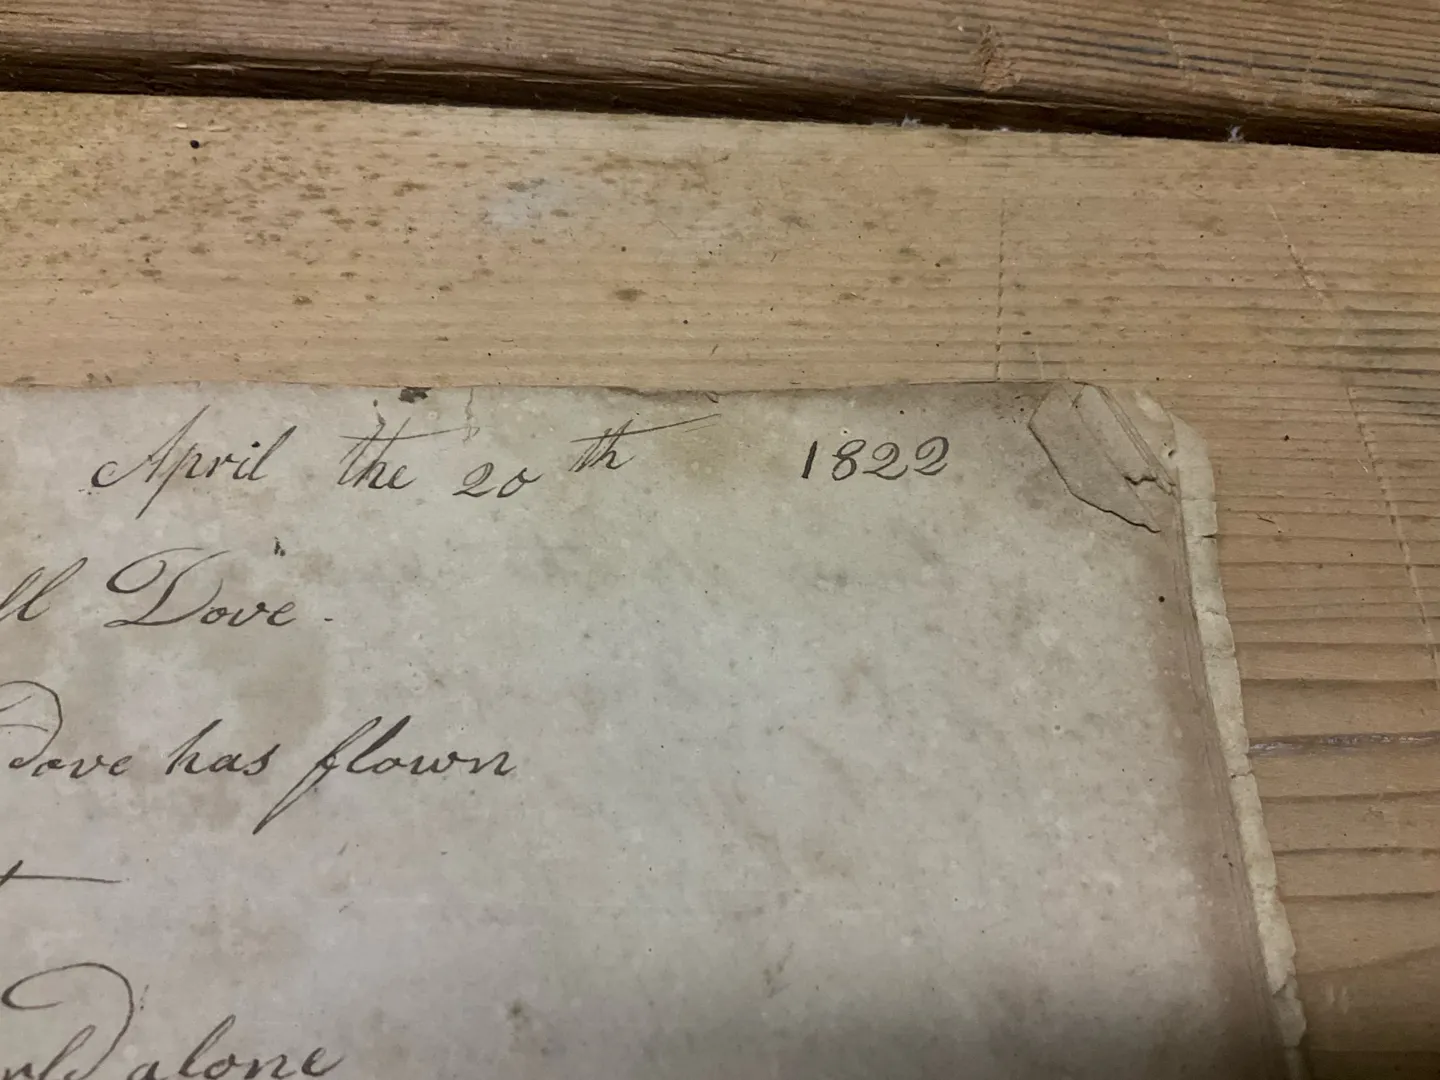 April the 20th 1822
ll Dove.
Dove has flown
alone